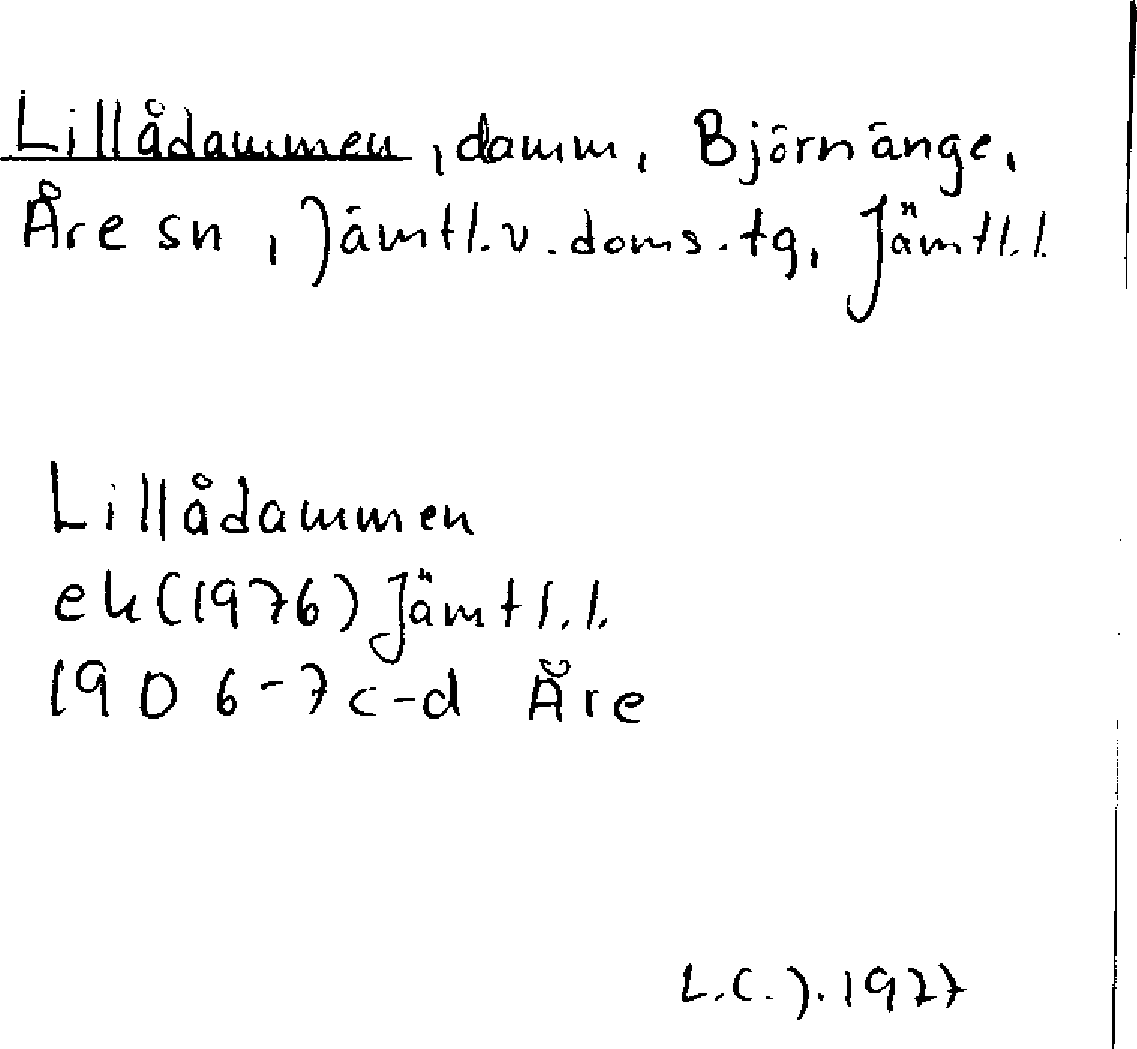 Lillådammen, damm, Björnänge,
Åre sn, Jämtl.v.doms.tg, Jämtl.l.
Lillådammen
ek(1976) Jämtl.l.
19D 6-7c-d Åre
L.C.J. 1977